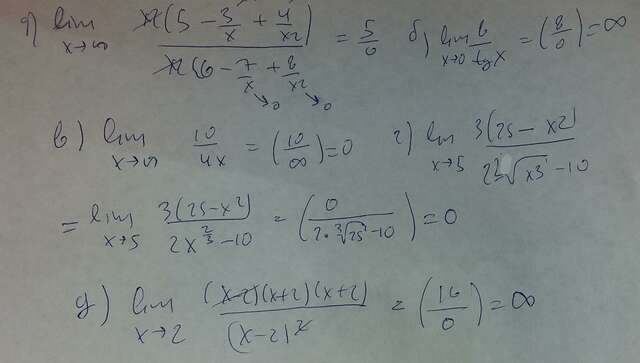 а) lim x→∞ x2(5 - 3/x + 4/x2) / x2(6 - 7/x + 8/x2) = 5/6 б) lim x→0 6/tgx = (8/0) = ∞
→0 →0
в) lim x→∞ 10/4x = (10/∞) = 0 г) lim x→5 3(25 - x2) / 2∛x3 - 10
= lim x→5 3(25-x²) / 2x^(2/3) - 10 = (0 / 2·∛25 - 10) = 0
д) lim x→2 (x-2)(x+2)(x+2) / (x-2)² = (16/0) = ∞